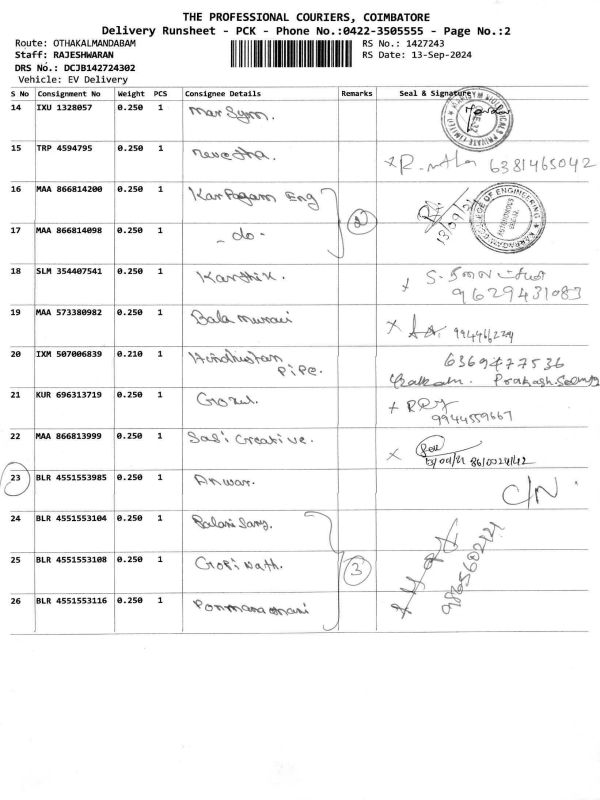 THE PROFESSIONAL COURIERS, COIMBATORE
Delivery Runsheet - PCK - Phone No.:0422-3505555 - Page No.:2
Route: OTHAKALMANDABAM
RS No.: 1427243
Staff: RAJESHWARAN
RS Date: 13-Sep-2024
DRS No.: DCJB142724302
Vehicle: EV Delivery
S No Consignment No Weight PCS Consignee Details Remarks Seal & Signature
14 IXU 1328057 0.250 1 Mar Sym.
15 TRP 4594795 0.250 1 6381465042
16 MAA 866814200 0.250 1 Karpagam Eng 2
KARPAGAM COLLEGE OF ENGINEERING
17 MAA 866814098 0.250 1 - do -
18 SLM 354407541 0.250 1 Karthik. 9629431083
19 MAA 573380982 0.250 1 Bala murali
20 IXM 507006839 0.210 1 Hindhustan PiPe. 6369477536
21 KUR 696313719 0.250 1 Gokul. 9944559667
22 MAA 866813999 0.250 1 Sasi Creative.
23 BLR 4551553985 0.250 1 Anwar. C/N
24 BLR 4551553104 0.250 1
25 BLR 4551553108 0.250 1 Gopi nath. 3
26 BLR 4551553116 0.250 1